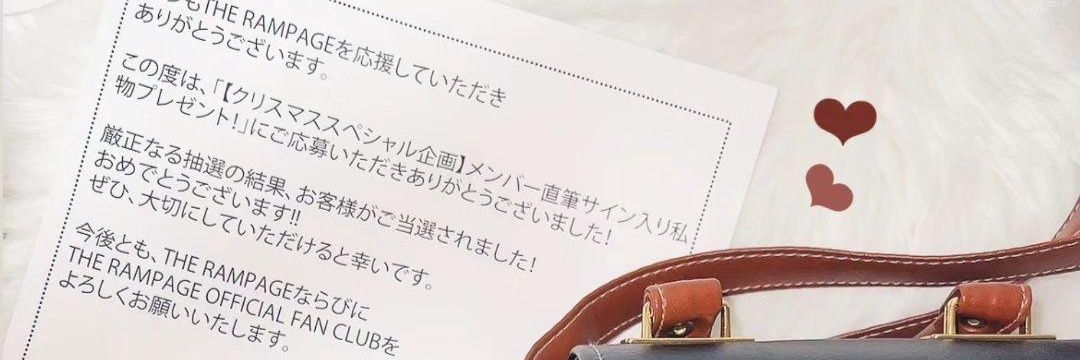 もTHE RAMPAGEを応援していただき
ありがとうございます。
この度は、「【クリスマススペシャル企画】メンバー直筆サイン入り私
物プレゼント!」にご応募いただきありがとうございました!
厳正なる抽選の結果、お客様がご当選されました!
おめでとうございます!!
ぜひ、大切にしていただけると幸いです。
今後とも、THE RAMPAGEならびに
THE RAMPAGE OFFICIAL FAN CLUBを
よろしくお願いいたします。